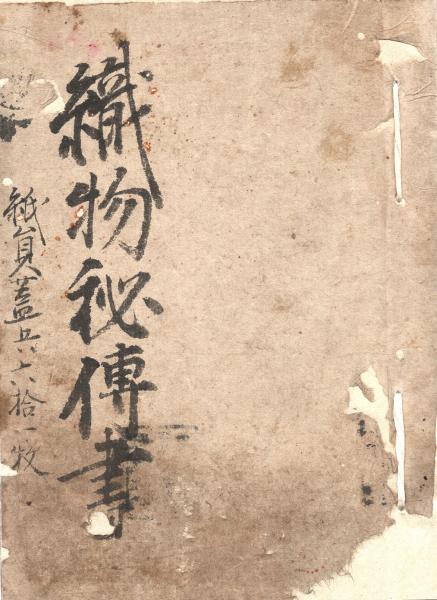 織物秘傳書
紙員蓋共六拾一枚